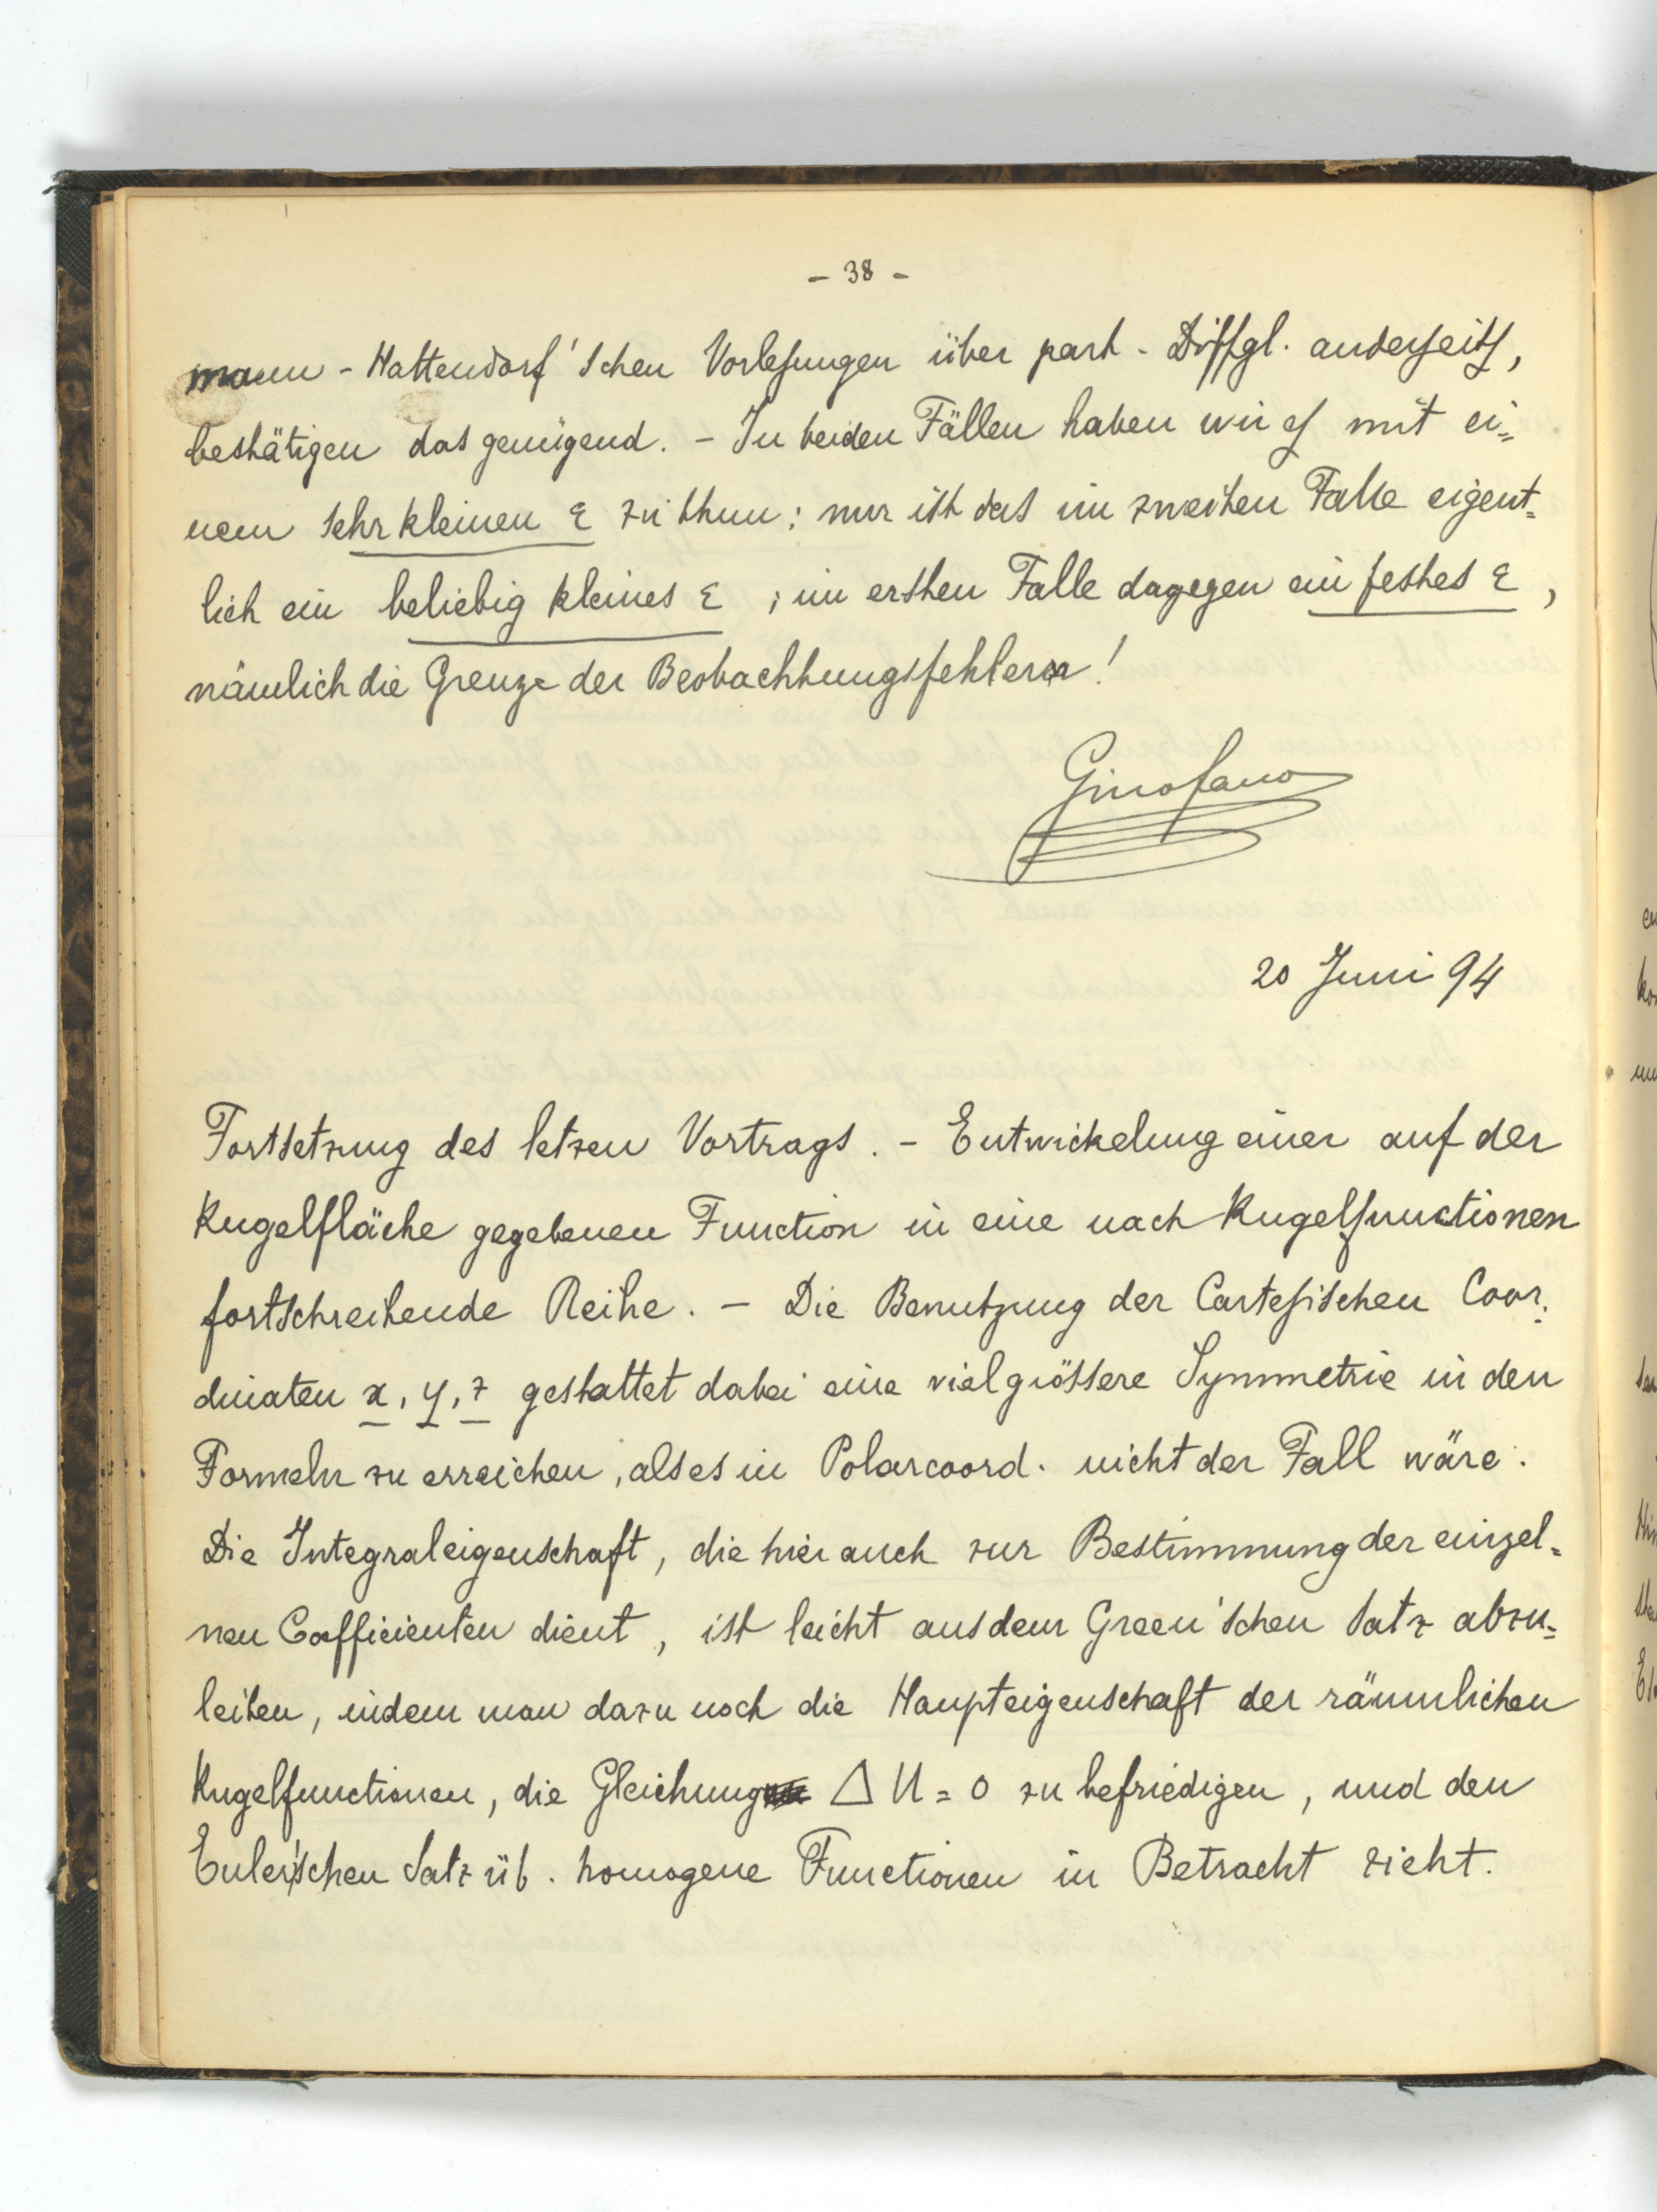 - 38 -
mann - Hattendorf'schen Vorlesungen über part. Diffgl. anderseits,
bestätigen das genügend. - In beiden Fällen haben wir es mit ei=
nem sehr kleinen ε zu thun; nur ist das im zweiten Falle eigent=
lich ein beliebig kleines ε ; im ersten Falle dagegen ein festes ε ,
nämlich die Grenze der Beobachtungsfehler!
Gino Fano
20 Juni 94
Fortsetzung des letzen Vortrags. - Entwickelung einer auf der
Kugelfläche gegebenen Function in eine nach Kugelfunctionen
fortschreitende Reihe. - Die Benutzung der Cartesischen Coor=
dinaten x, y, z gestattet dabei eine viel grössere Symmetrie in den
Formeln zu erreichen, als es in Polarcoord. nicht der Fall wäre.
Die Integraleigenschaft, die hier auch zur Bestimmung der einzel=
nen Coefficienten dient, ist leicht aus dem Green'schen Satz abzu=
leiten, indem man dazu noch die Haupteigenschaft der räumlichen
Kugelfunctionen, die Gleichung Δ U = 0 zu befriedigen, und den
Euler'schen Satz üb. homogene Functionen in Betracht zieht.